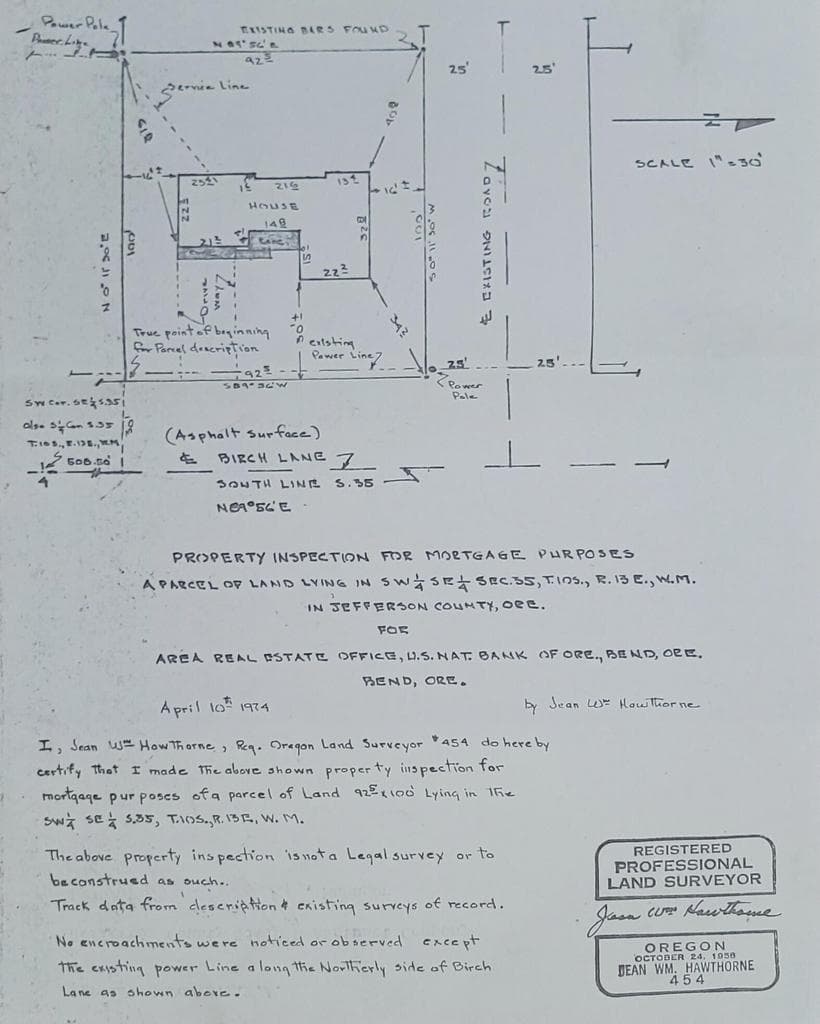 Power Pole
Power Line
EXISTING BARS FOUND
N 89° 56' E
92 5
25'
25'
Service Line
SCALE 1" = 30'
16' ±
16' ±
23 4
1 5
21 6
13 4
HOUSE
22 5
14 8
32 8
21 2
4 1
15 6
22 2
N 0° 11' 30" E
100'
100'
S 0° 11' 30" W
℄ EXISTING ROAD
Drive
way
True point of beginning
for Parcel description
30' ±
34 2
existing
Power Line
92 5
S 89° 56' W
25'
25'
Power
Pole
SW Cor. SE 1/4 S.35
Also S 1/4 Cor. S.35
T.10S., R.13E., W.M.
30'
1/4
508.50'
(Asphalt Surface)
℄ BIRCH LANE
SOUTH LINE S.35
N89°56'E
PROPERTY INSPECTION FOR MORTGAGE PURPOSES
A PARCEL OF LAND LYING IN SW 1/4 SE 1/4 SEC.35, T.10S., R.13E., W.M.
IN JEFFERSON COUNTY, ORE.
FOR
AREA REAL ESTATE OFFICE, U.S. NAT. BANK OF ORE., BEND, ORE.
BEND, ORE.
April 10th 1974
by Jean Wm Hawthorne
I, Jean Wm Hawthorne, Reg. Oregon Land Surveyor #454 do here by
certify That I made The above shown property inspection for
mortgage purposes of a parcel of Land 92 5 x 100' Lying in The
SW 1/4 SE 1/4 S.35, T.10S., R.13E, W.M.
The above property inspection is not a Legal survey or to
be construed as such..
Track data from description & existing surveys of record.
No encroachments were noticed or observed except
The existing power Line along the Northerly side of Birch
Lane as shown above.
REGISTERED
PROFESSIONAL
LAND SURVEYOR
Jean Wm Hawthorne
OREGON
OCTOBER 24, 1958
JEAN WM. HAWTHORNE
454